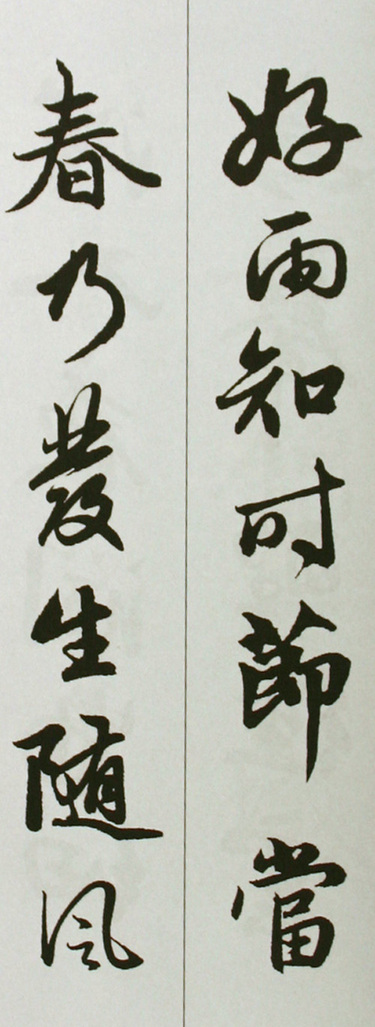 好雨知时節當
春乃發生随风